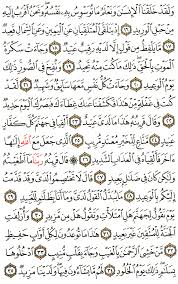 وَلَقَدْ خَلَقْنَا ٱلْإِنسَٰنَ وَنَعْلَمُ مَا تُوَسْوِسُ بِهِۦ نَفْسُهُۥ وَنَحْنُ أَقْرَبُ إِلَيْهِ
مِنْ حَبْلِ ٱلْوَرِيدِ ١٦ إِذْ يَتَلَقَّى ٱلْمُتَلَقِّيَانِ عَنِ ٱلْيَمِينِ وَعَنِ ٱلشِّمَالِ قَعِيدٌ
١٧ مَّا يَلْفِظُ مِن قَوْلٍ إِلَّا لَدَيْهِ رَقِيبٌ عَتِيدٌ ١٨ وَجَآءَتْ سَكْرَةُ
ٱلْمَوْتِ بِٱلْحَقِّ ذَٰلِكَ مَا كُنتَ مِنْهُ تَحِيدُ ١٩ وَنُفِخَ فِى ٱلصُّورِ ذَٰلِكَ
يَوْمُ ٱلْوَعِيدِ ٢٠ وَجَآءَتْ كُلُّ نَفْسٍ مَّعَهَا سَآئِقٌ وَشَهِيدٌ ٢١ لَّقَدْ
كُنتَ فِى غَفْلَةٍ مِّنْ هَٰذَا فَكَشَفْنَا عَنكَ غِطَآءَكَ فَبَصَرُكَ ٱلْيَوْمَ حَدِيدٌ
٢٢ وَقَالَ قَرِينُهُۥ هَٰذَا مَا لَدَىَّ عَتِيدٌ ٢٣ أَلْقِيَا فِى جَهَنَّمَ كُلَّ كَفَّارٍ
عَنِيدٍ ٢٤ مَّنَّاعٍ لِّلْخَيْرِ مُعْتَدٍ مُّرِيبٍ ٢٥ ٱلَّذِى جَعَلَ مَعَ ٱللَّهِ إِلَٰهًا
ءَاخَرَ فَأَلْقِيَاهُ فِى ٱلْعَذَابِ ٱلشَّدِيدِ ٢٦ قَالَ قَرِينُهُۥ رَبَّنَا مَآ أَطْغَيْتُهُۥ
وَلَٰكِن كَانَ فِى ضَلَٰلٍۭ بَعِيدٍ ٢٧ قَالَ لَا تَخْتَصِمُوا۟ لَدَىَّ وَقَدْ قَدَّمْتُ
إِلَيْكُم بِٱلْوَعِيدِ ٢٨ مَا يُبَدَّلُ ٱلْقَوْلُ لَدَىَّ وَمَآ أَنَا۠ بِظَلَّٰمٍ لِّلْعَبِيدِ ٢٩
يَوْمَ نَقُولُ لِجَهَنَّمَ هَلِ ٱمْتَلَأْتِ وَتَقُولُ هَلْ مِن مَّزِيدٍ ٣٠ وَأُزْلِفَتِ
ٱلْجَنَّةُ لِلْمُتَّقِينَ غَيْرَ بَعِيدٍ ٣١ هَٰذَا مَا تُوعَدُونَ لِكُلِّ أَوَّابٍ حَفِيظٍ
٣٢ مَّنْ خَشِىَ ٱلرَّحْمَٰنَ بِٱلْغَيْبِ وَجَآءَ بِقَلْبٍ مُّنِيبٍ ٣٣ ٱدْخُلُوهَا
بِسَلَٰمٍ ذَٰلِكَ يَوْمُ ٱلْخُلُودِ ٣٤ لَهُم مَّا يَشَآءُونَ فِيهَا وَلَدَيْنَا مَزِيدٌ ٣٥